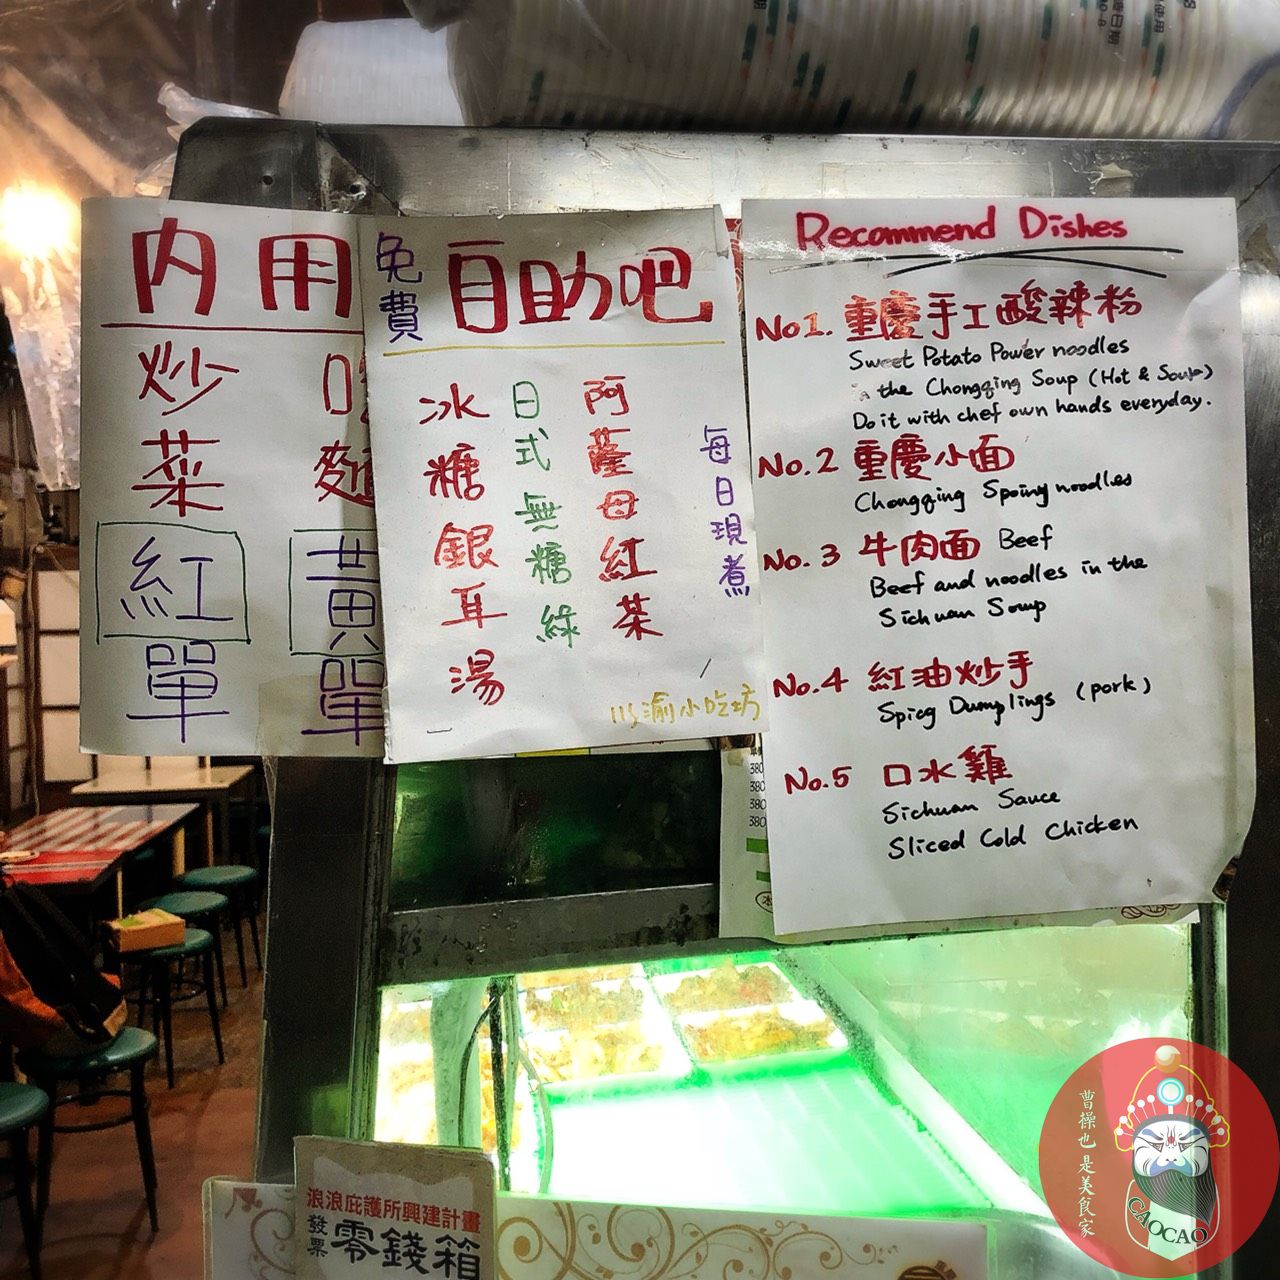 內用
炒菜
紅單
麵
黃單
免費
自助吧
冰糖銀耳湯
日式無糖綠
阿薩母紅茶
每日現煮
川渝小吃坊
Recommend Dishes
No1. 重慶手工酸辣粉
Sweet Potato Power noodles
in the Chongqing Soup (Hot & Soup)
Do it with chef own hands everyday.
No.2 重慶小面
Chongqing Spoiny noodles
No.3 牛肉面 Beef
Beef and noodles in the
Sichuan Soup
No.4 紅油炒手
Spicg Dumplings (pork)
No.5 口水雞
Sichuan Sauce
Sliced Cold Chicken
380
380
380
380
浪浪庇護所興建計畫
發票零錢箱
曹操也是美食家
CAOCAO